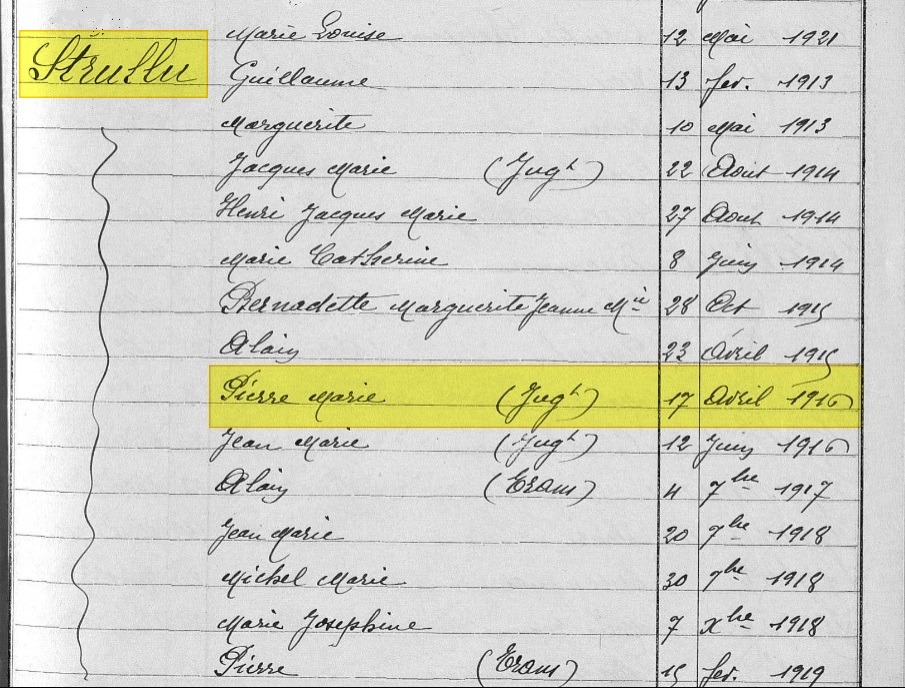 Marie Louise 12 Mai 1921
Strullu Guillaume 13 fev. 1913
Marguerite 10 Mai 1913
Jacques Marie (Jugt) 22 Aout 1914
Henri Jacques Marie 27 Aout 1914
Marie Catherine 8 Juin 1914
Bernadette Marguerite Jeanne Mie 28 Oct 1915
Alain 23 Avril 1915
Pierre Marie (Jugt) 17 Avril 1916
Jean Marie (Jugt) 12 Juin 1916
Alain (Trans) 4 7bre 1917
Jean Marie 20 7bre 1918
Michel Marie 30 7bre 1918
Marie Josephine 7 Xbre 1918
Pierre (Trans) 15 fev. 1919